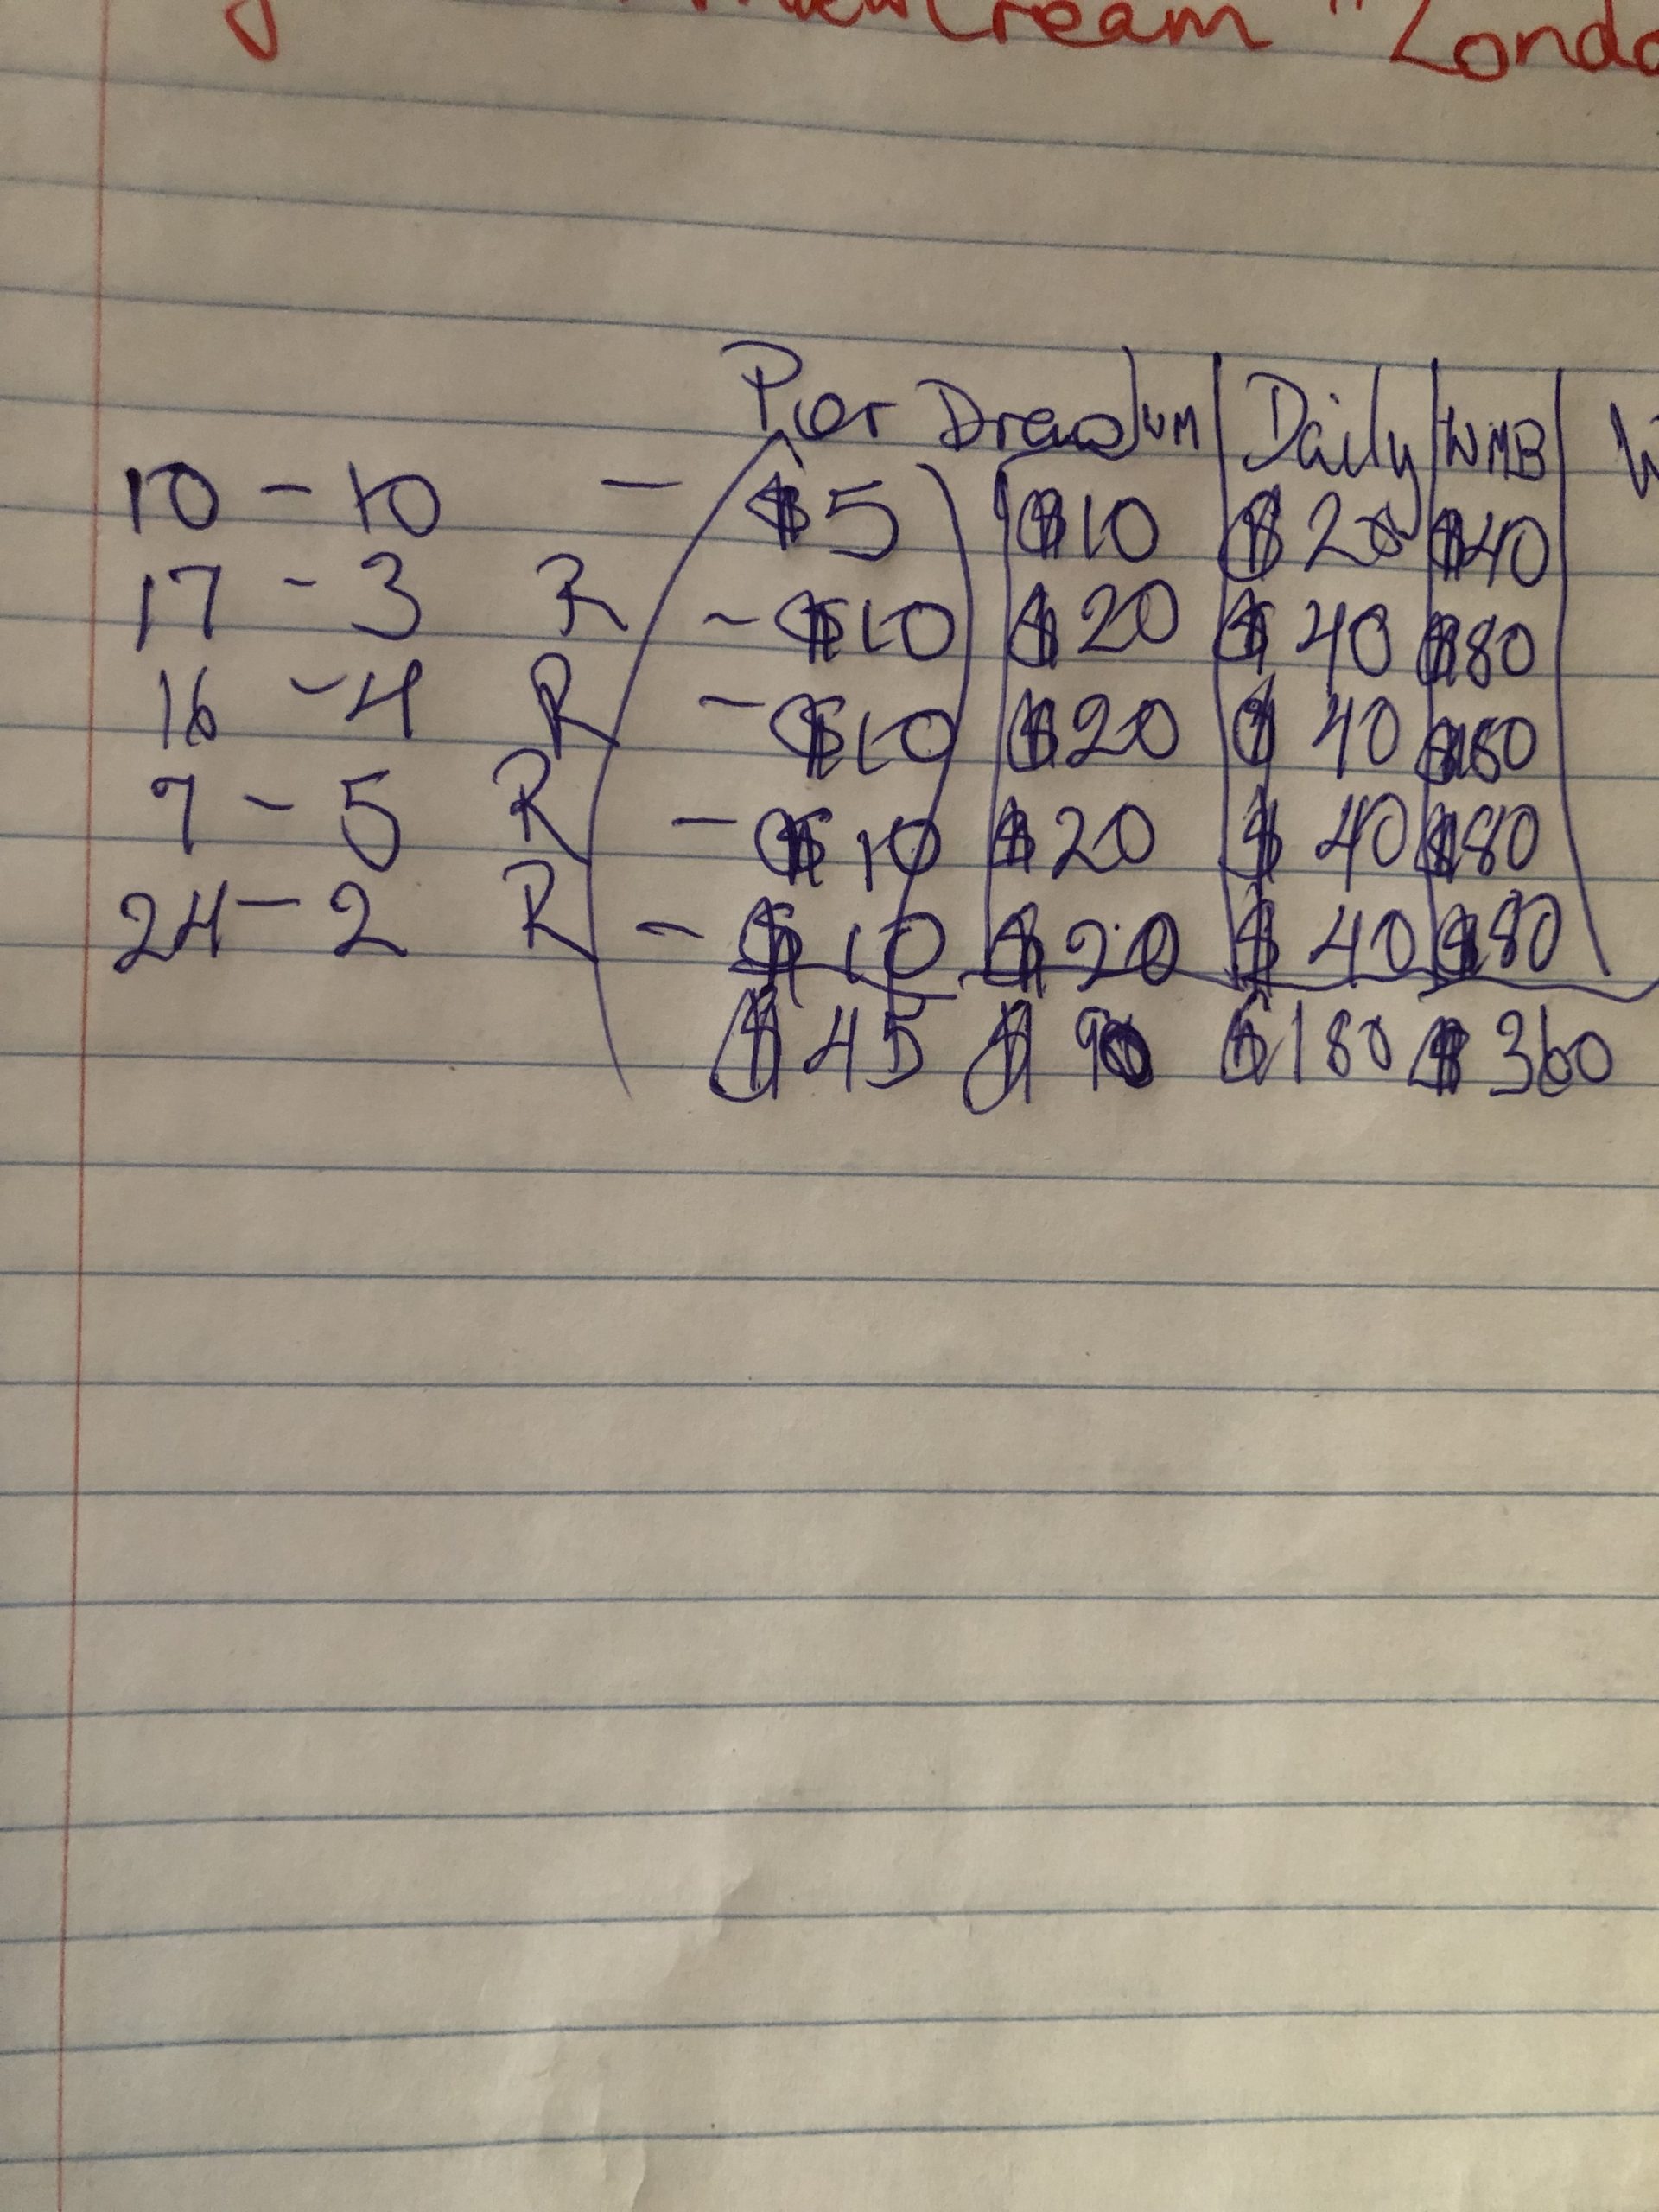 Cream "Londo
Per Draw WM Daily WMB W
10 - 10 - $5 $10 $20 $40
17 - 3 R - $10 $20 $40 $80
16 - 4 R - $10 $20 $40 $80
7 - 5 R - $10 $20 $40 $80
24 - 2 R - $10 $20 $40 $80
$45 $90 $180 $360